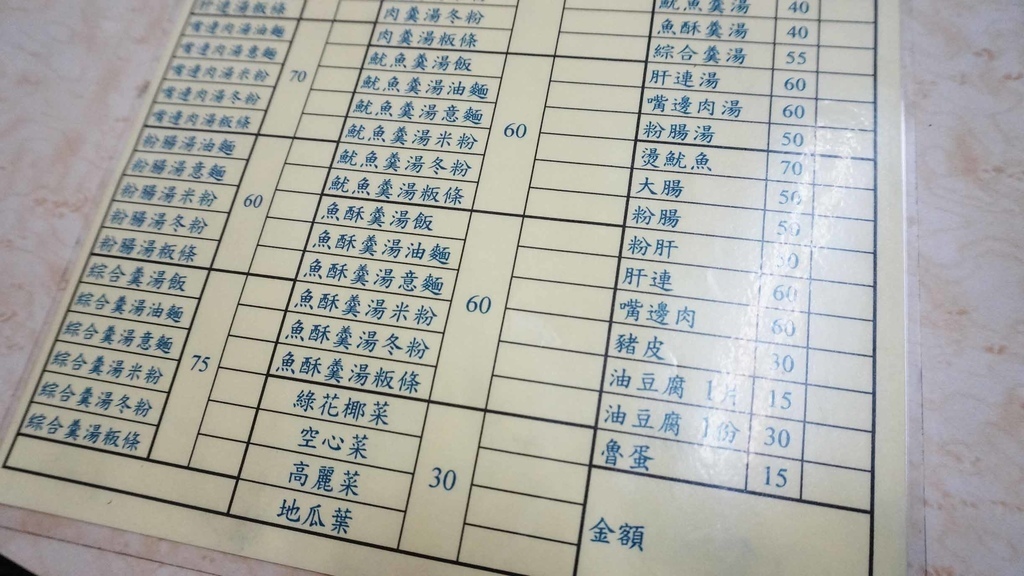 肝連湯粄條
嘴邊肉湯油麵
嘴邊肉湯意麵
嘴邊肉湯米粉
嘴邊肉湯冬粉
嘴邊肉湯粄條
70
粉腸湯油麵
粉腸湯意麵
粉腸湯米粉
粉腸湯冬粉
粉腸湯粄條
60
綜合羹湯飯
綜合羹湯油麵
綜合羹湯意麵
綜合羹湯米粉
綜合羹湯冬粉
綜合羹湯粄條
75
肉羹湯冬粉
肉羹湯粄條
魷魚羹湯飯
魷魚羹湯油麵
魷魚羹湯意麵
魷魚羹湯米粉
魷魚羹湯冬粉
魷魚羹湯粄條
60
魚酥羹湯飯
魚酥羹湯油麵
魚酥羹湯意麵
魚酥羹湯米粉
魚酥羹湯冬粉
魚酥羹湯粄條
60
綠花椰菜
空心菜
高麗菜
地瓜葉
30
魷魚羹湯 40
魚酥羹湯 40
綜合羹湯 55
肝連湯 60
嘴邊肉湯 60
粉腸湯 50
燙魷魚 70
大腸 50
粉腸 50
粉肝
肝連 60
嘴邊肉 60
豬皮 30
油豆腐 1片 15
油豆腐 1份 30
魯蛋 15
金額